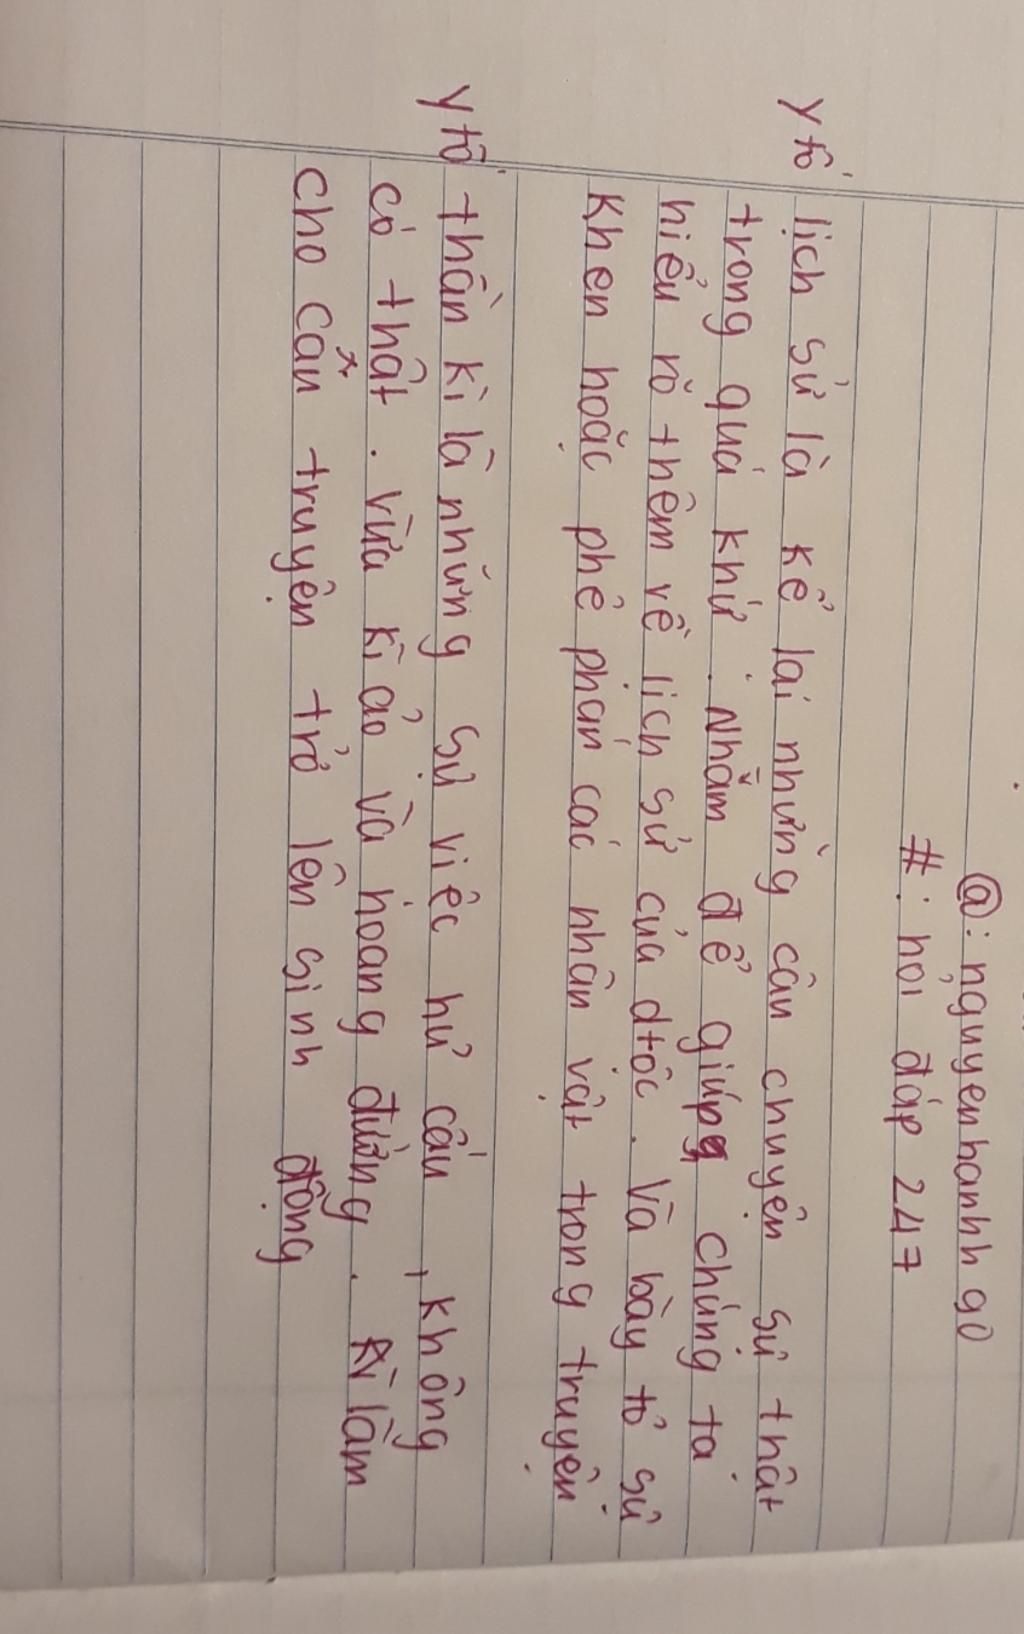 @: nguyenhanhgo
#: hỏi đáp 247
y tố lịch sử là kể lại những câu chuyện sự thật
trong quá khứ. Nhằm để giúp chúng ta
hiểu rõ thêm về lịch sử của dtộc. Và bày tỏ sự
khen hoặc phê phán các nhân vật trong truyện
y tố thần kì là những sự việc hư cấu, không
có thật. vừa kì ảo và hoang đường. làm
cho câu truyện trở lên sinh động